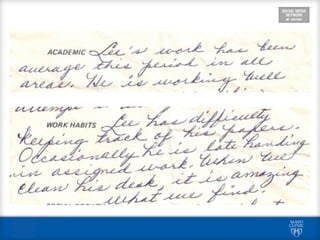 SOCIAL MEDIA
NETWORK
ACADEMIC Lee's work has been
average this period in all
areas. He is working well
WORK HABITS Lee has difficulty
keeping track of his papers.
Occasionally he is late handing
in assigned work. When we
clean his desk, it is amazing
what we find.
MAYO
CLINIC